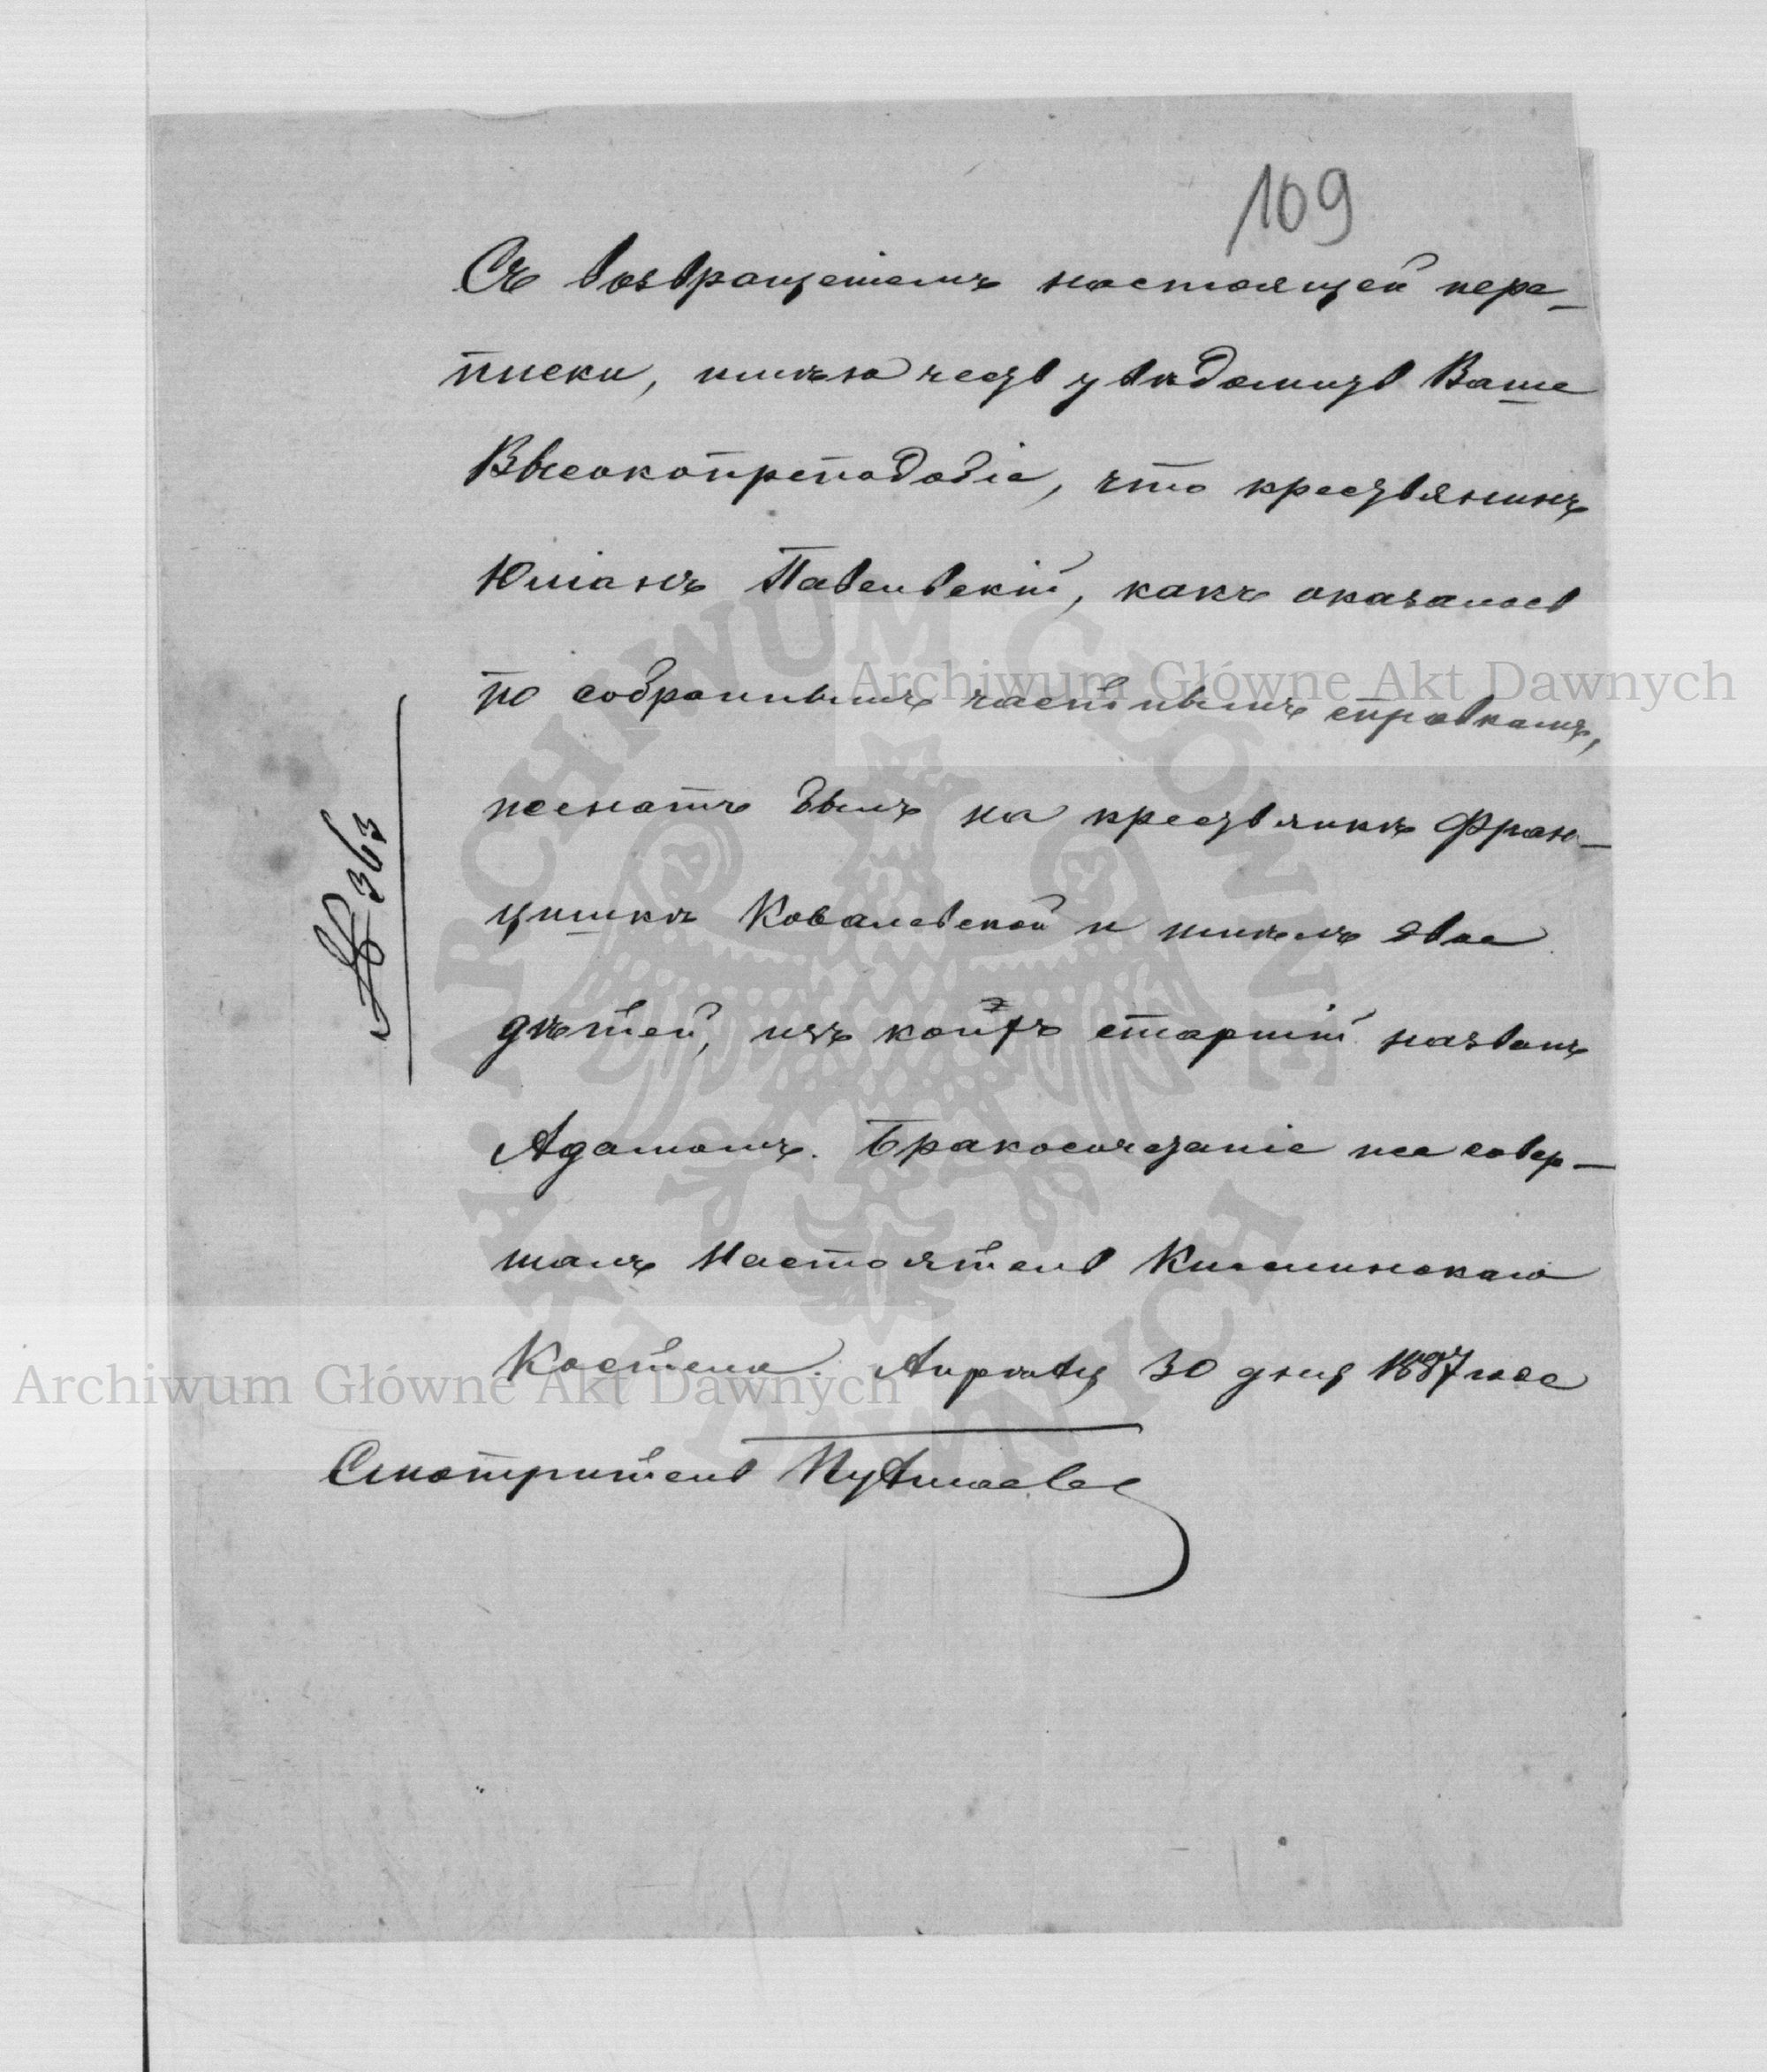 109
Съ возвращеніемъ настоящей пере-
писки, имѣю честь увѣдомить Ваше
Высокопреподобіе, что крестьянинъ
Юліанъ Павельскій, какъ оказалось
по собраннымъ частнымъ справкамъ,
женатъ былъ на крестьянкѣ Фран-
цишкѣ Ковалевской и имѣлъ двое
дѣтей, изъ коихъ старшій названъ
Адамомъ. Бракосочетаніе же совер-
шалъ Настоятель
Костела. Апрѣля 30 дня 1887 года
Смотритель
№ 363
Archiwum Główne Akt Dawnych
Archiwum Główne Akt Dawnych
ARCHIWUM GŁÓWNE AKT DAWNYCH